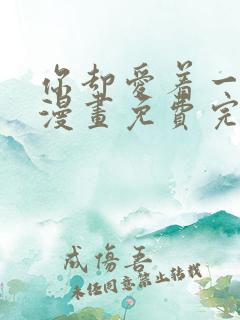 你却愛着一
漫畫免費完
成傷吾
未经同意禁止转载